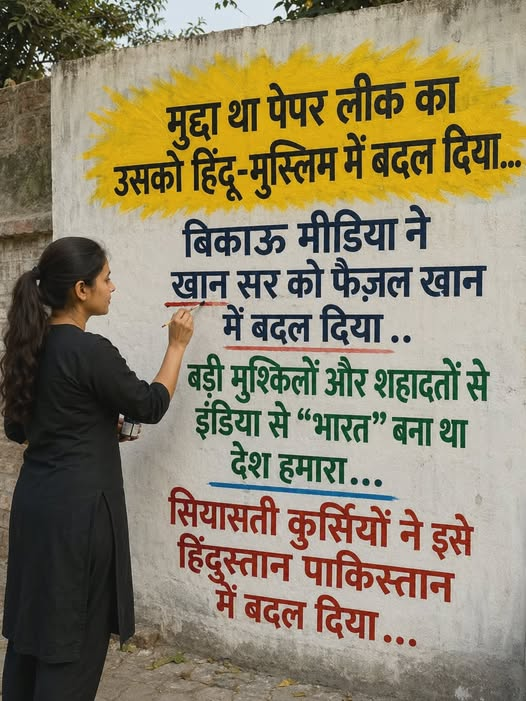 मुद्दा था पेपर लीक का
उसको हिंदू-मुस्लिम में बदल दिया...
बिकाऊ मीडिया ने
खान सर को फैज़ल खान
में बदल दिया..
बड़ी मुश्किलों और शहादतों से
इंडिया से “भारत” बना था
देश हमारा...
सियासती कुर्सियों ने इसे
हिंदुस्तान पाकिस्तान
में बदल दिया...